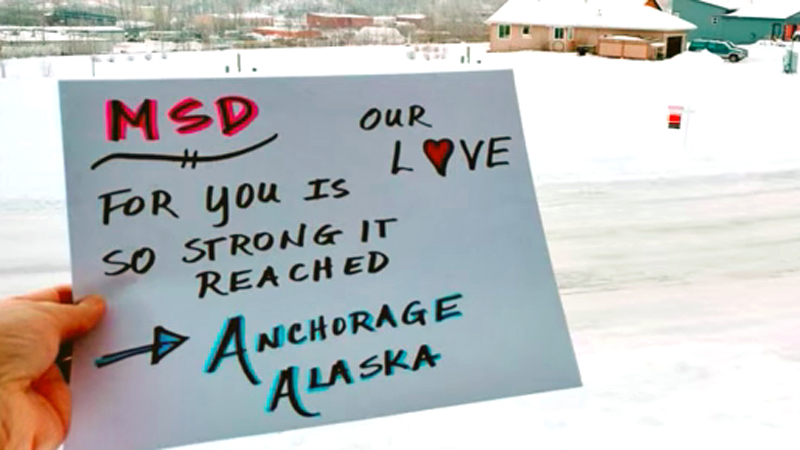 MSD OUR
L❤VE
FOR YOU IS
SO STRONG IT
REACHED
→ ANCHORAGE
ALASKA